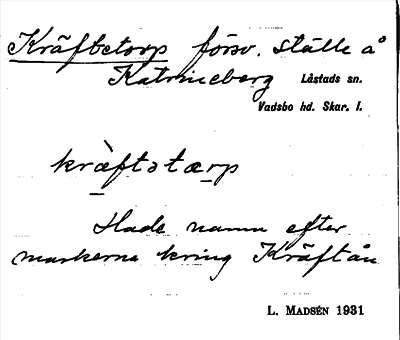 Kräfbetorp försv. ställe å
Katrineberg Låstads sn.
Vadsbo hd. Skar. l.
kràftətærp
Hade namn efter
markerna kring Kräftån
L. MADSÉN 1931